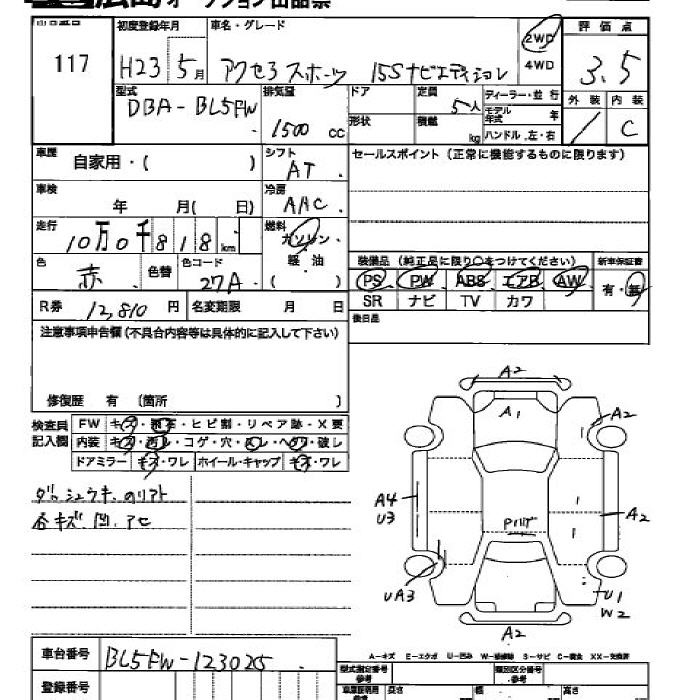 オークション出品票
出品番号 初度登録年月 車名・グレード 2WD 評価点
117 H23 5月 アクセラスポーツ 15Sナビエディション 4WD 3.5
型式 排気量 ドア 定員 ディーラー・並行 外装 内装
DBA-BL5FW 1500 cc 5人 モデル年式 年 C
形状 積載 kg ハンドル.左・右
車歴 自家用・( ) シフト AT セールスポイント(正常に機能するものに限ります)
車検 年 月( 日) 冷房 AAC
走行 10万0千818km 燃料 ガソリン・
色 赤 色替 色コード 27A 軽・油 ( )
装備品(純正品に限り○をつけてください) 新車保証書
PS PW ABS エアB AW 有・無
SR ナビ TV カワ
R券 12,810 円 名変期限 月 日 後日品
注意事項申告欄(不具合内容等は具体的に記入して下さい)
修復歴 有 (箇所 )
検査員記入欄 FW キズ・ ・ヒビ割・リペア跡・X要
内装 キズ・汚レ・コゲ・穴・スレ・ヘタリ・破レ
ドアミラー キズ・ワレ ホイール・キャップ キズ・ワレ
各キズ.凹.アセ
A2
A1
A2
A4
U3
A2
UA3
U1
W2
A2
A-キズ E-エクボ U-凹み W-補修跡 S-サビ C-腐食 XX-交換済
車台番号 BL5FW-123025
登録番号
型式指定番号 参考 類別区分番号 参考
長さ 幅 高さ